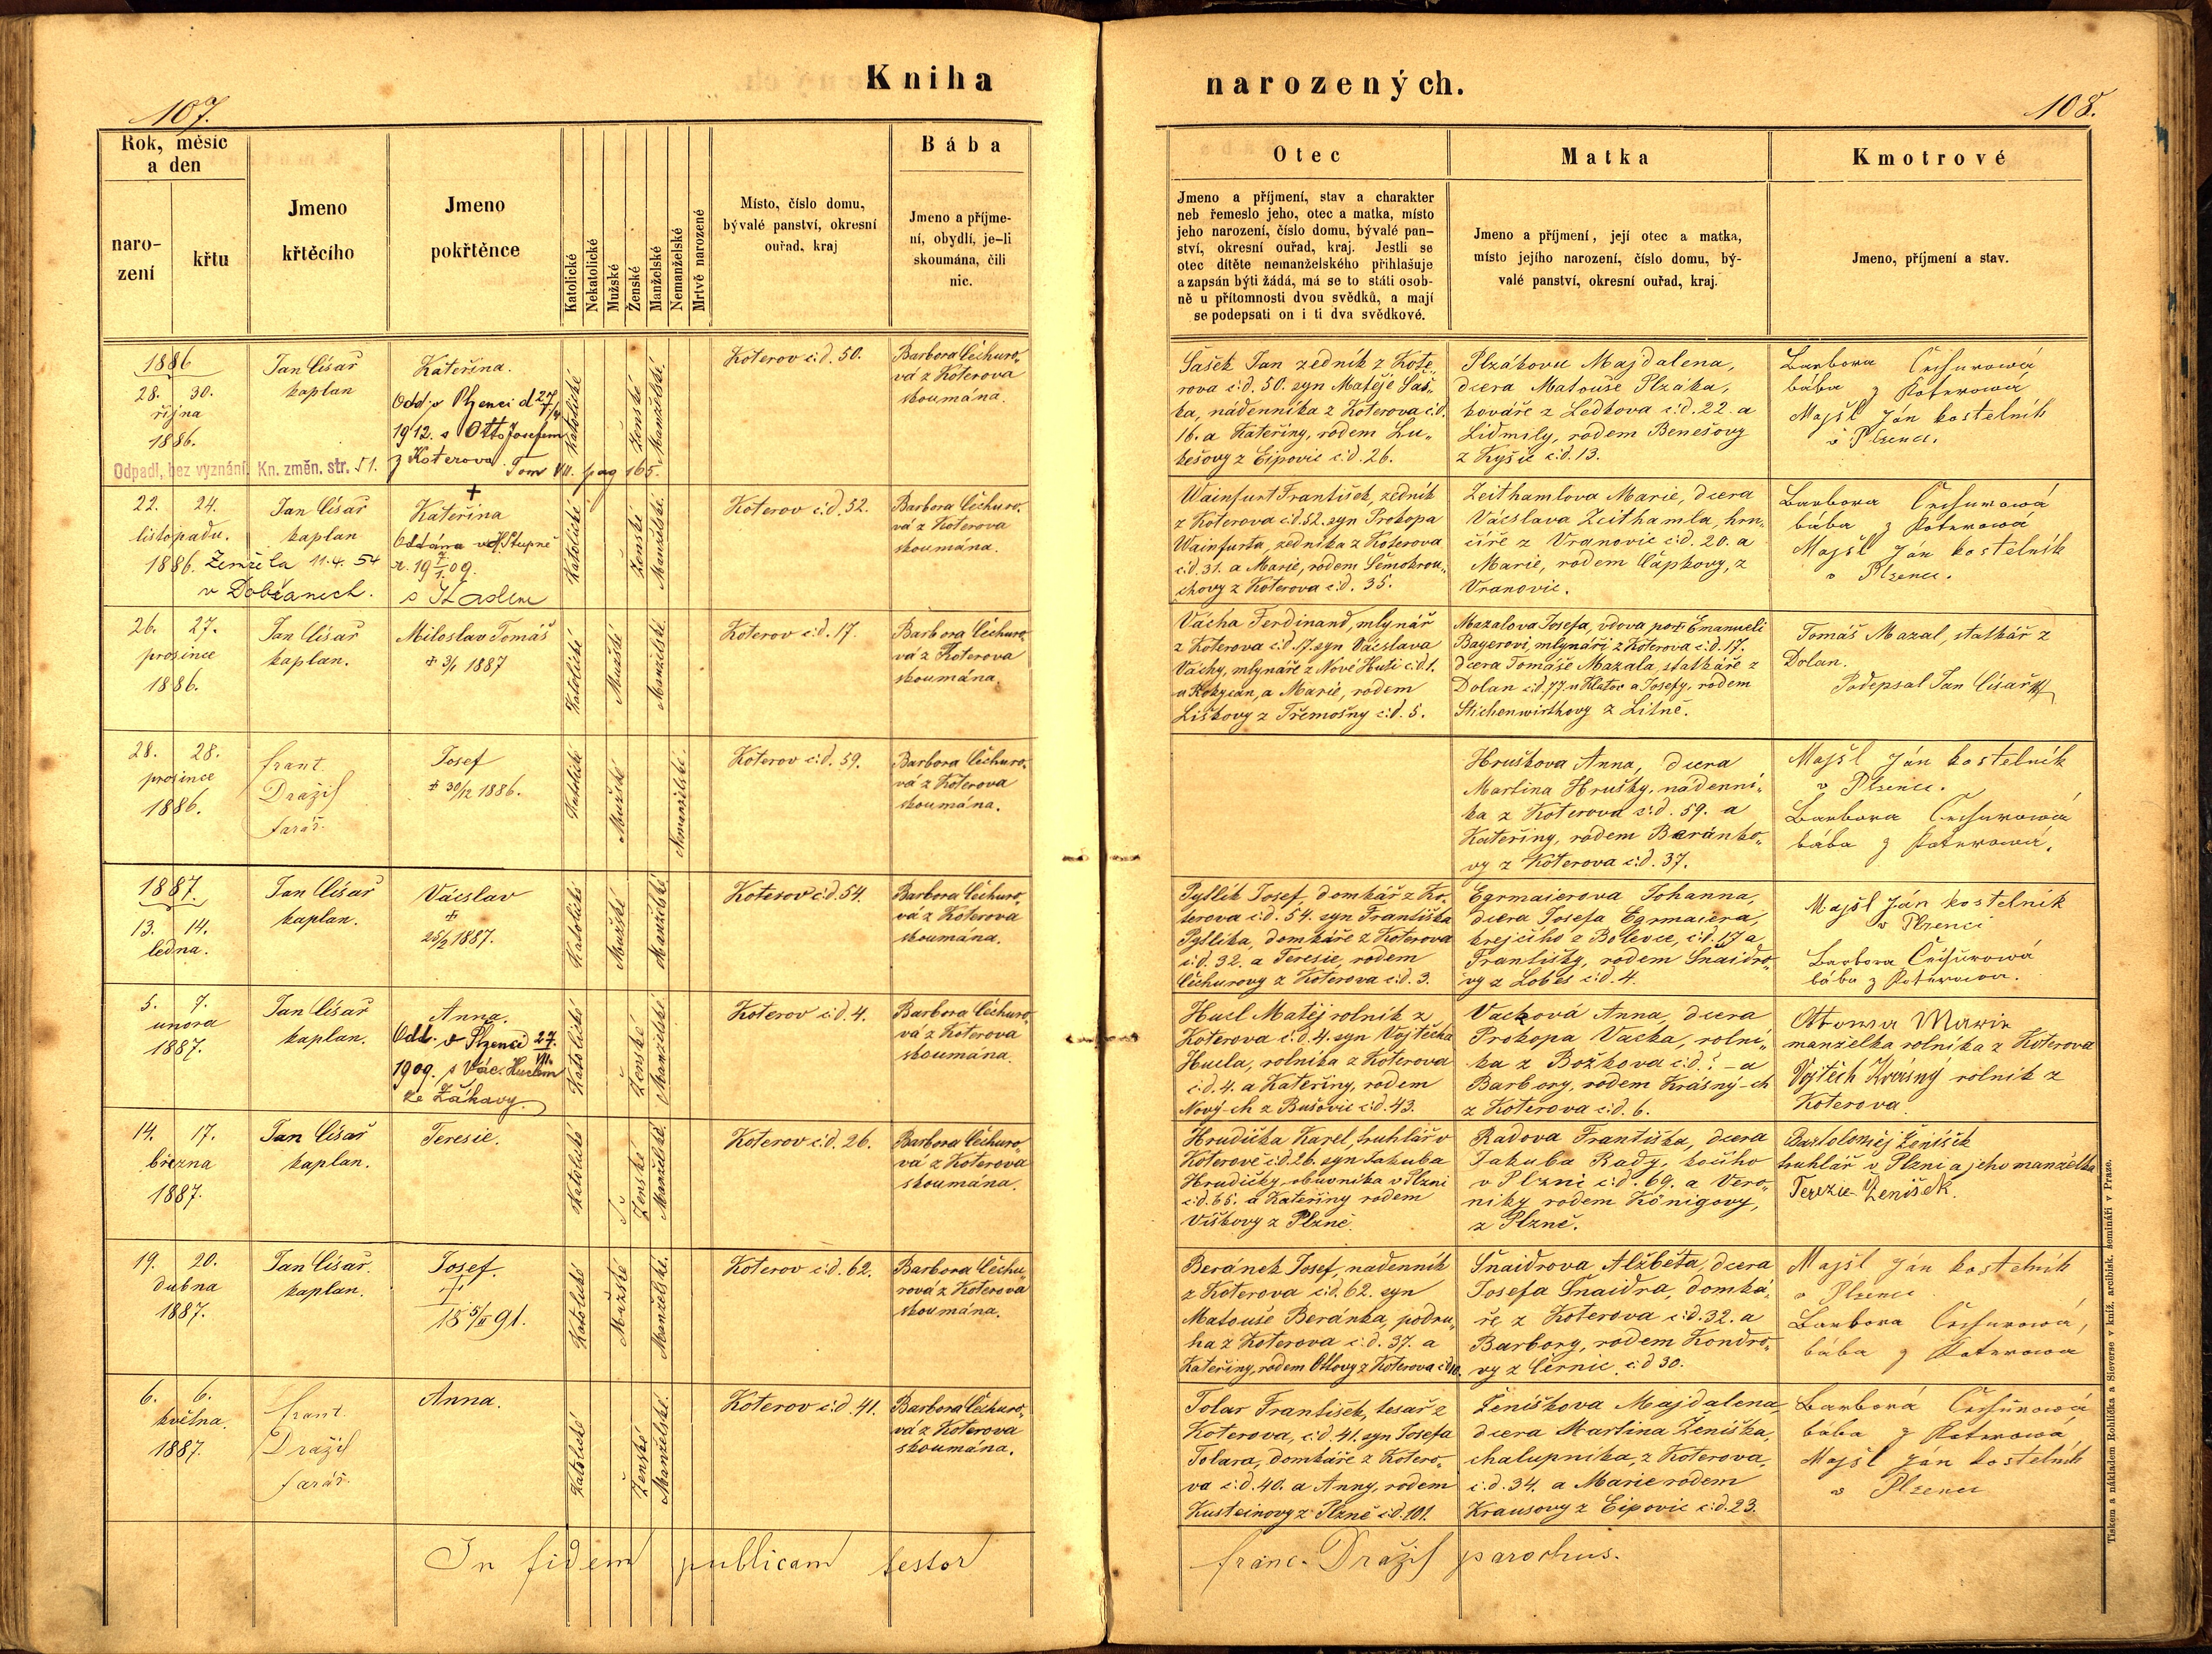 Kniha
narozených.
107.
108.
Rok, měsíc
a den
naro-
zení
křtu
Jmeno
křtěcího
Jmeno
pokřtěnce
Katolické
Nekatolické
Mužské
Ženské
Manželské
Nemanželské
Mrtvě narozené
Místo, číslo domu,
bývalé panství, okresní
ouřad, kraj
Bába
Jmeno a příjme-
ní, obydlí, je-li
skoumána, čili
nic.
Otec
Jmeno a příjmení, stav a charakter
neb řemeslo jeho, otec a matka, místo
jeho narození, číslo domu, bývalé pan-
ství, okresní ouřad, kraj. Jestli se
otec dítěte nemanželského přihlašuje
a zapsán býti žádá, má se to státi osob-
ně u přítomnosti dvou svědků, a mají
se podepsati on i ti dva svědkové.
Matka
Jmeno a příjmení, její otec a matka,
místo jejího narození, číslo domu, bý-
valé panství, okresní ouřad, kraj.
Kmotrové
Jmeno, příjmení a stav.
1886
28. 30.
října
1886.
Jan Císař
kaplan
Kateřina.
Odd. v Plzenci d 27/
1912. s Otto Josefem
z Koterova Tom VII. pag 165.
Odpadl, bez vyznání. Kn. změn. str. 51.
Katolické
Ženské
Manželské
Koterov č:d. 50.
Barbora Čěchuro„
vá z Koterova
skoumána.
Šašek Jan zedník z Kote„
rova č:d. 50. syn Matěje Šaš„
ka, nádenníka z Koterova č:d.
16. a Kateřiny, rodem Lu„
kešovy z Ejpovic č:d. 26.
Plzákovu Majdalena,
dcera Matouše Plzáka,
kováře z Ledkova č:d. 22. a
Lidmily, rodem Benešovy
z Kyšic č:d. 13.
Barbora Čechurowá
bába z Koterowa
Majšl Ján kostelník
v Plzenci.
22. 24.
listopadu.
1886. Zemřela 11.4. 54
v Dobřanech.
Jan Císař
kaplan
+
Kateřina
Oddána v H. Stupně
Katolické
Ženské
Manželské
Koterov č:d. 52.
Barbora Čěchuro„
vá z Koterova
skoumána.
Wainfurt František, zedník
z Koterova č:d. 52. syn Prokopa
Wainfurta, zedníka z Koterova
č:d. 31. a Marie, rodem Šemokrou„
chovy z Koterova č:d. 35.
Zeithamlova Marie, dcera
Václava Zeithamla, hrn„
číře z Vranovic č:d. 20. a
Marie, rodem Čapkovy, z
Vranovic.
Barbora Čechurowá
bába z Koterowá
Majšl Ján kostelník
v Plzenci.
26. 27.
prosince
1886.
Jan Císař
kaplan.
Miloslav Tomáš
+ 3/1 1887
Katolické
Mužské
Manželské
Koterov č:d. 17.
Barbora Čěchuro„
vá z Koterova
skoumána.
Vácha Ferdinand, mlynář
z Koterova č:d. 17. syn Václava
Váchy, mlynáře z Nové Huti č:d 1.
u Rokycan, a Marie, rodem
Liškovy z Třemošny č:d. 5.
Mazalova Josefa, vdova po † Emanueli
Bayerovi, mlynáři z Koterova č:d. 17.
dcera Tomáše Mazala, statkáře z
Dolan č:d. 77. u Klatov a Josefy, rodem
Stichenwirthovy z Litně.
Tomáš Mazal, statkář z
Dolan.
Podepsal Jan Císař
28. 28.
prosince
1886.
Frant.
Dražil
farář.
Josef
+ 30/12 1886.
Katolické
Mužské
Nemanželské.
Koterov č:d. 59.
Barbora Čěchuro„
vá z Koterova
skoumána.
Hruškova Anna, dcera
Martina Hrušky, nádenní„
ka z Koterova č:d. 59. a
Kateřiny, rodem Beránko„
vy z Koterova č:d. 37.
Majšl Ján kostelník
v Plzenci.
Barbora Čechurowá
bába z Koterowá.
1887.
13. 14.
ledna.
Jan Císař
kaplan.
Václav
+
25/2 1887.
Katolické
Mužské
Manželské
Koterov č:d. 54.
Barbora Čěchuro„
vá z Koterova
skoumána.
Pytlík Josef, domkář z Ko„
terova č:d. 54. syn Františka
Pytlíka, domkáře z Koterova
č:d. 32. a Teresie, rodem
Čěchurovy z Koterova č:d. 3.
Egrmaierova Johanna,
dcera Josefa Egrmaiera,
krejčího z Bolevce, č:d. 17 a
Františky, rodem Šnaidro„
vy z Lobes č:d. 4.
Majšl Ján kostelník
v Plzenci
Barbora Čechurowá
bába z Koterowa.
5. 7.
února
1887.
Jan Císař
kaplan.
Anna.
Odd. v Plzenci 27.
VII.
1909. s Vác. Huclem
ze Žákavy.
Katolické
Ženské
Manželské
Koterov č:d. 4.
Barbora Čěchuro„
vá z Koterova
skoumána.
Hucl Matěj rolník z
Koterova č:d. 4. syn Vojtěcha
Hucla, rolníka z Koterova
č:d. 4. a Kateřiny, rodem
Nový-ch z Bušovic č:d. 43.
Vacková Anna, dcera
Prokopa Vacka, rolní„
ka z Božkova č:d. ? – a
Barbory, rodem Krásný-ch
z Koterova č:d. 6.
Ottowa Marie
manželka rolníka z Koterova
Vojtěch Krásný rolník z
Koterova
14. 17.
března
1887.
Jan Císař
kaplan.
Teresie.
Katolické
Ženské
Manželské.
Koterov č:d. 26.
Barbora Čěchuro„
vá z Koterova
skoumána.
Hrudička Karel, truhlář v
Koterově č:d. 26. syn Jakuba
Hrudičky, obuvníka v Plzni
č:d. 65. a Kateřiny rodem
Víškovy z Plzně.
Radova Františka, dcera
Jakuba Rady, kočího
v Plzni č:d. 69. a Vero„
niky rodem Königovy,
z Plzně.
Bartoloměj Ženíšek
truhlář v Plzni a jeho manželka
Terezie Ženíšek.
19. 20.
dubna
1887.
Jan Císař.
kaplan.
Josef.
+
18 5/II 91.
Katolické
Mužské
Manželské.
Koterov č:d. 62.
Barbora Čěchu„
rová z Koterova
skoumána.
Beránek Josef, nádenník
z Koterova č:d. 62. syn
Matouše Beránka, podru„
ha z Koterova č:d. 37. a
Kateřiny, rodem Ottovy z Koterova č:d 10.
Šnaidrova Alžběta, dcera
Josefa Šnaidra, domká„
ře z Koterova č:d. 32. a
Barbory, rodem Kondro„
vy z Černic č:d 30.
Majšl Ján kostelník
v Plzenci
Barbora Čechurowá,
bába z Koterowa
6. 6.
května.
1887.
Frant.
Dražil
farář.
Anna.
Katolické
Ženské
Manželské.
Koterov č:d. 41.
Barbora Čěchuro„
vá z Koterova
skoumána.
Tolar František, tesař z
Koterova, č:d. 41. syn Josefa
Tolara, domkáře z Kotero„
va č:d. 40. a Anny, rodem
Kusteinovy z Plzně č:d. 101.
Ženíškova Majdalena,
dcera Martina Ženíška,
chalupníka, z Koterova,
č:d. 34. a Marie rodem
Krausovy z Ejpovic č:d. 23.
Barborá Čechurowá
bába z Koterowá
Majšl Ján kostelník
v Plzenci
In fidem publicam testor
Franc. Dražil parochus.
Tiskem a nákladem Rohlíčka a Sieverse v kníž. arcibisk. semináři v Praze.